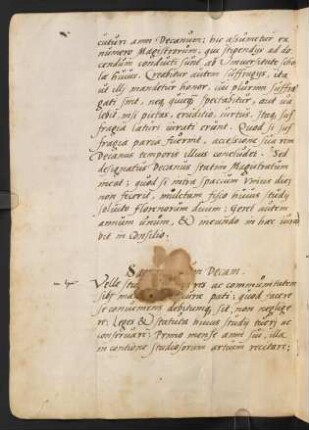 cuturi anni Decanum; hic assumetur ex
numero Magistrorum, qui stipendijs ad do
cendum conducti sunt ab Universitate scho
læ huius. Creabitur autem suffragijs, ita
ut illi mandetur honor, cui plurimi suffra
gati sint, neq quicq spectabitur, aut va
lebit, nisi pietas, eruditio, virtus, Itaq suf
fragia laturi iurati erunt. Quod si suf
fragia paria fuerint, accessione sua rem
Decanus temporis illius concludet. Sed
designatus Decanus statim Magistratum
ineat; quod si intra spacium unius diei
non fecerit, mulctam fisco huius study
solvito florenorum duum: Geret autem
annum unum, &
vit in Consilio.
Decani
Velle ac communitatem
sibi pati: quod facere
se convenient debitumq sit, non neglige
re: Leges & statuta huius study tueri ac
conservare: Primo mense anni sui, illa
in contione studiosorum artium recitare;